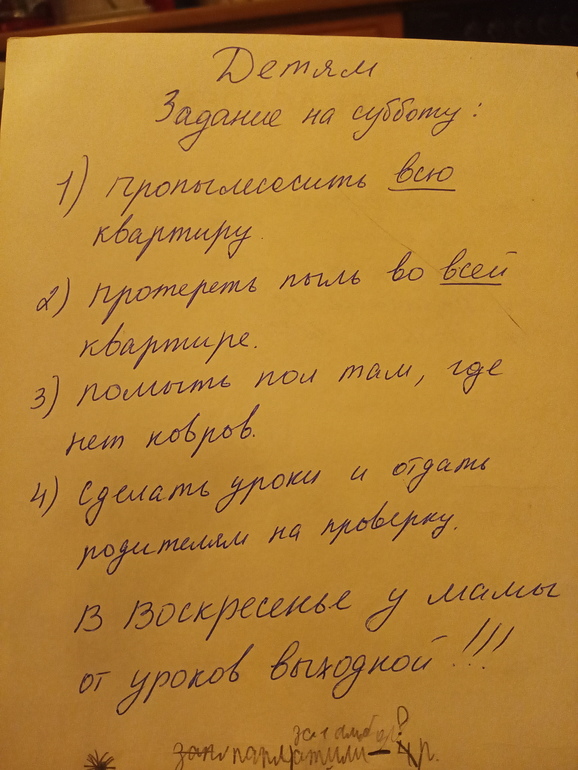 Детям
Задание на субботу:
1) пропылесосить всю
квартиру.
2) протереть пыль во всей
квартире.
3) помыть пол там, где
нет ковров.
4) сделать уроки и отдать
родителям на проверку.
В Воскресенье у мамы
от уроков выходной!!!